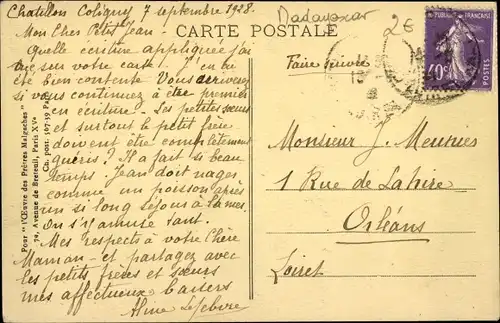 Chatillon Coligny 7 septembre 1928.
Mon Cher Petit Jean.
Quelle écriture appliquée j'ai
vue sur votre carte ! J'en ai
été bien contente. Vous arriverez
si vous continuez à être premier
en écriture. Les petites sœurs
et surtout le petit frère
doivent être complètement
guéris ? Il a fait si beau
temps. Jean doit nager
comme un poisson après
un si long séjour à la mer.
On s'y amuse tant.
Mes respects à votre Chère
Maman - et partagez avec
les petits frères et sœurs
mes affectueux baisers
Aline Lefebvre
Pour "l'Œuvre des Prêtres Malgaches"
79, Avenue de Breteuil, Paris XVe
Ch. post. 167-39 Paris
Madagascar
2€
CARTE POSTALE
Faire suivre
POSTES
40c
Monsieur J. Meunies
1 Rue de Lahire
Orléans
Loiret